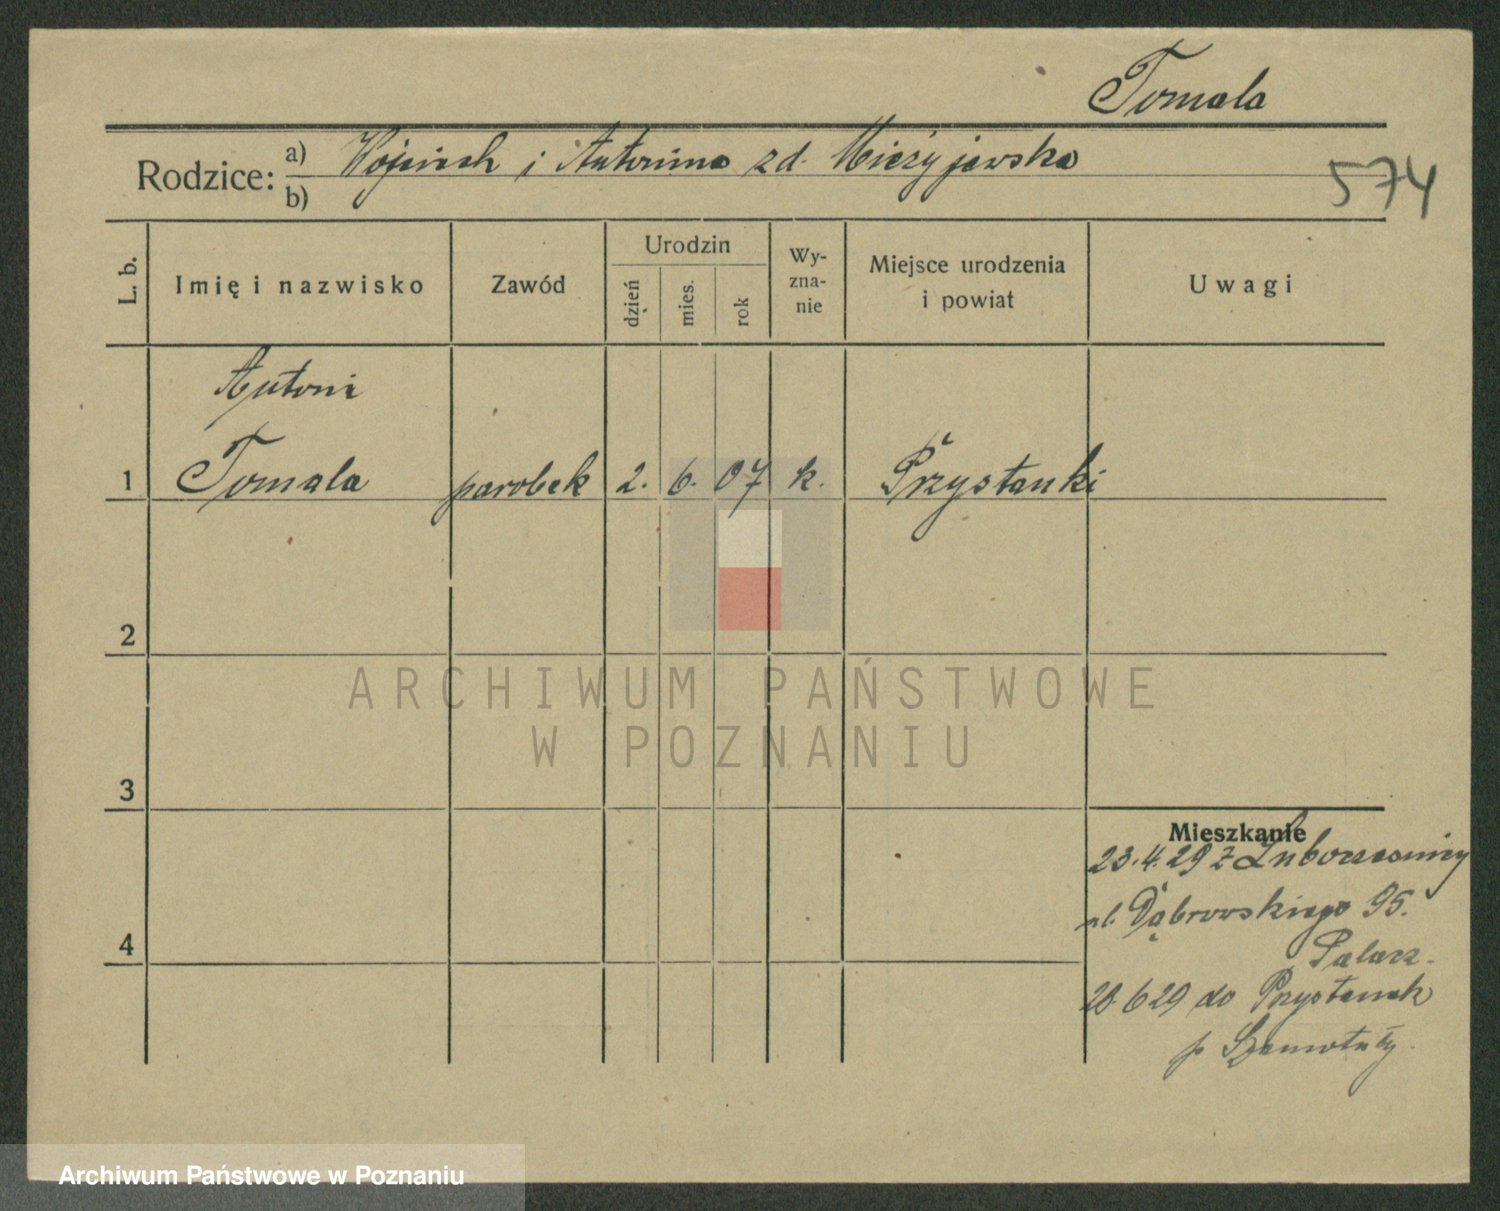 Tomala
Rodzice: a) Wojciech i Antonina zd.
b)
574
L. b.
Imię i nazwisko
Zawód
Urodzin
dzień
mies.
rok
Wy-
zna-
nie
Miejsce urodzenia
i powiat
Uwagi
Antoni
1 Tomala parobek 2. 6. 07 k. Przystanki
2
3
4
Mieszkanie
23.4.29 z
ul. Dąbrowskiego 95.
Palacz.
20.6 29 do Przystanek
p Szamotuły.
ARCHIWUM PAŃSTWOWE
W POZNANIU
Archiwum Państwowe w Poznaniu